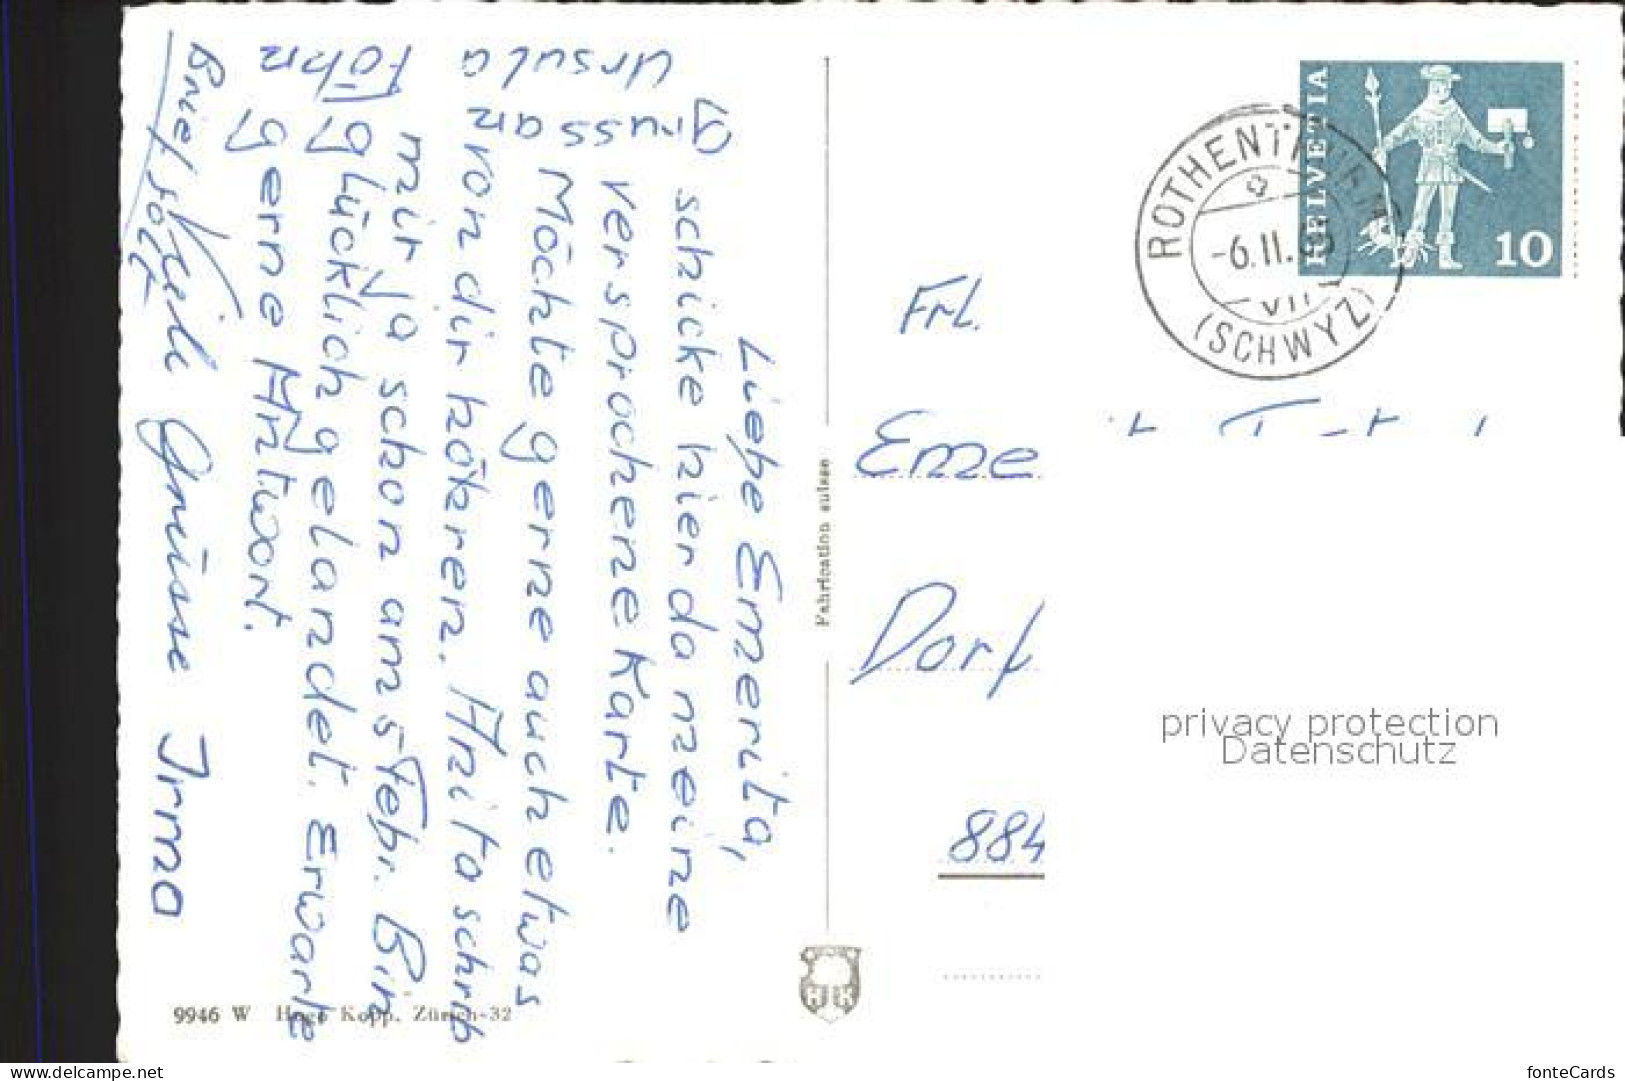 Liebe Emerita,
schicke hier da n eine
versprochene Karte.
Möchte gerne auch etwas
von dir hören. Anita schrib
mir ja schon am 5 Febr. Bin
glücklich gelandet. Erwarte
gerne Antwort.
Viele Grüsse Irma
Gruss an
Ursula
Föhn
Brief folgt
Frl.
Eme
Dorf
884
HELVETIA
10
ROTHENTHURM
-6.II.
VII
(SCHWYZ)
Fabrication suisse
HK
9946 W Hugo Kopp, Zürich-32
privacy protection
Datenschutz
delcampe.net
ak-ansichtskarten.de
fonteCards